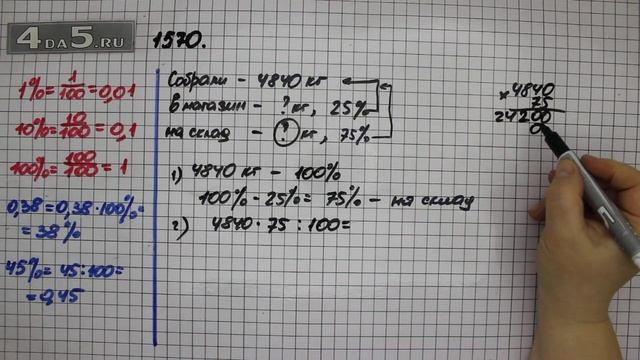 4DA5.RU
1570.
1% = 1/100 = 0,01
10% = 10/100 = 0,1
100% = 100/100 = 1
0,38 = 0,38·100% =
= 38%
45% = 45:100 =
= 0,45
Собрали - 4840 кг
в магазин - ? кг, 25%
на склад - ? кг, 75%
1) 4840 кг - 100%
100% - 25% = 75% - на склад
2) 4840·75:100=
× 4840
75
24200
0